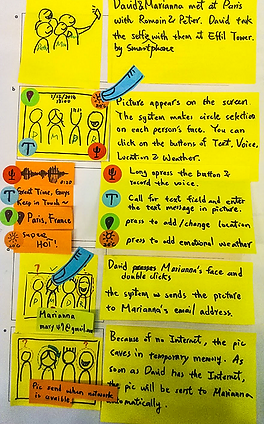 David & Marianna met at Paris
with Romain & Peter. David took
the selfie with them at Effil Tower.
by Smartphone
Picture appears on the screen.
The system makes circle selection
on each person's face. You can
click on the buttons of Text, Voice,
Location & Weather.
T
0:20
Long apress the button &
record the voice.
T
Great Time, Guys
Keep in Touch ~
T
Call for text field and enter
the text message in picture.
Paris, France
press to add/change location
super
HOT!
press to add emotional weather
David presses Marianna's face and
double clicks
the system sends the picture
to Marianna's email address.
Marianna
Because of no Internet, the pic
saves in temporary memory. As
soon as David has the Internet,
the pic will be sent to Marianna
automatically.
Pic send when network
is avaible.